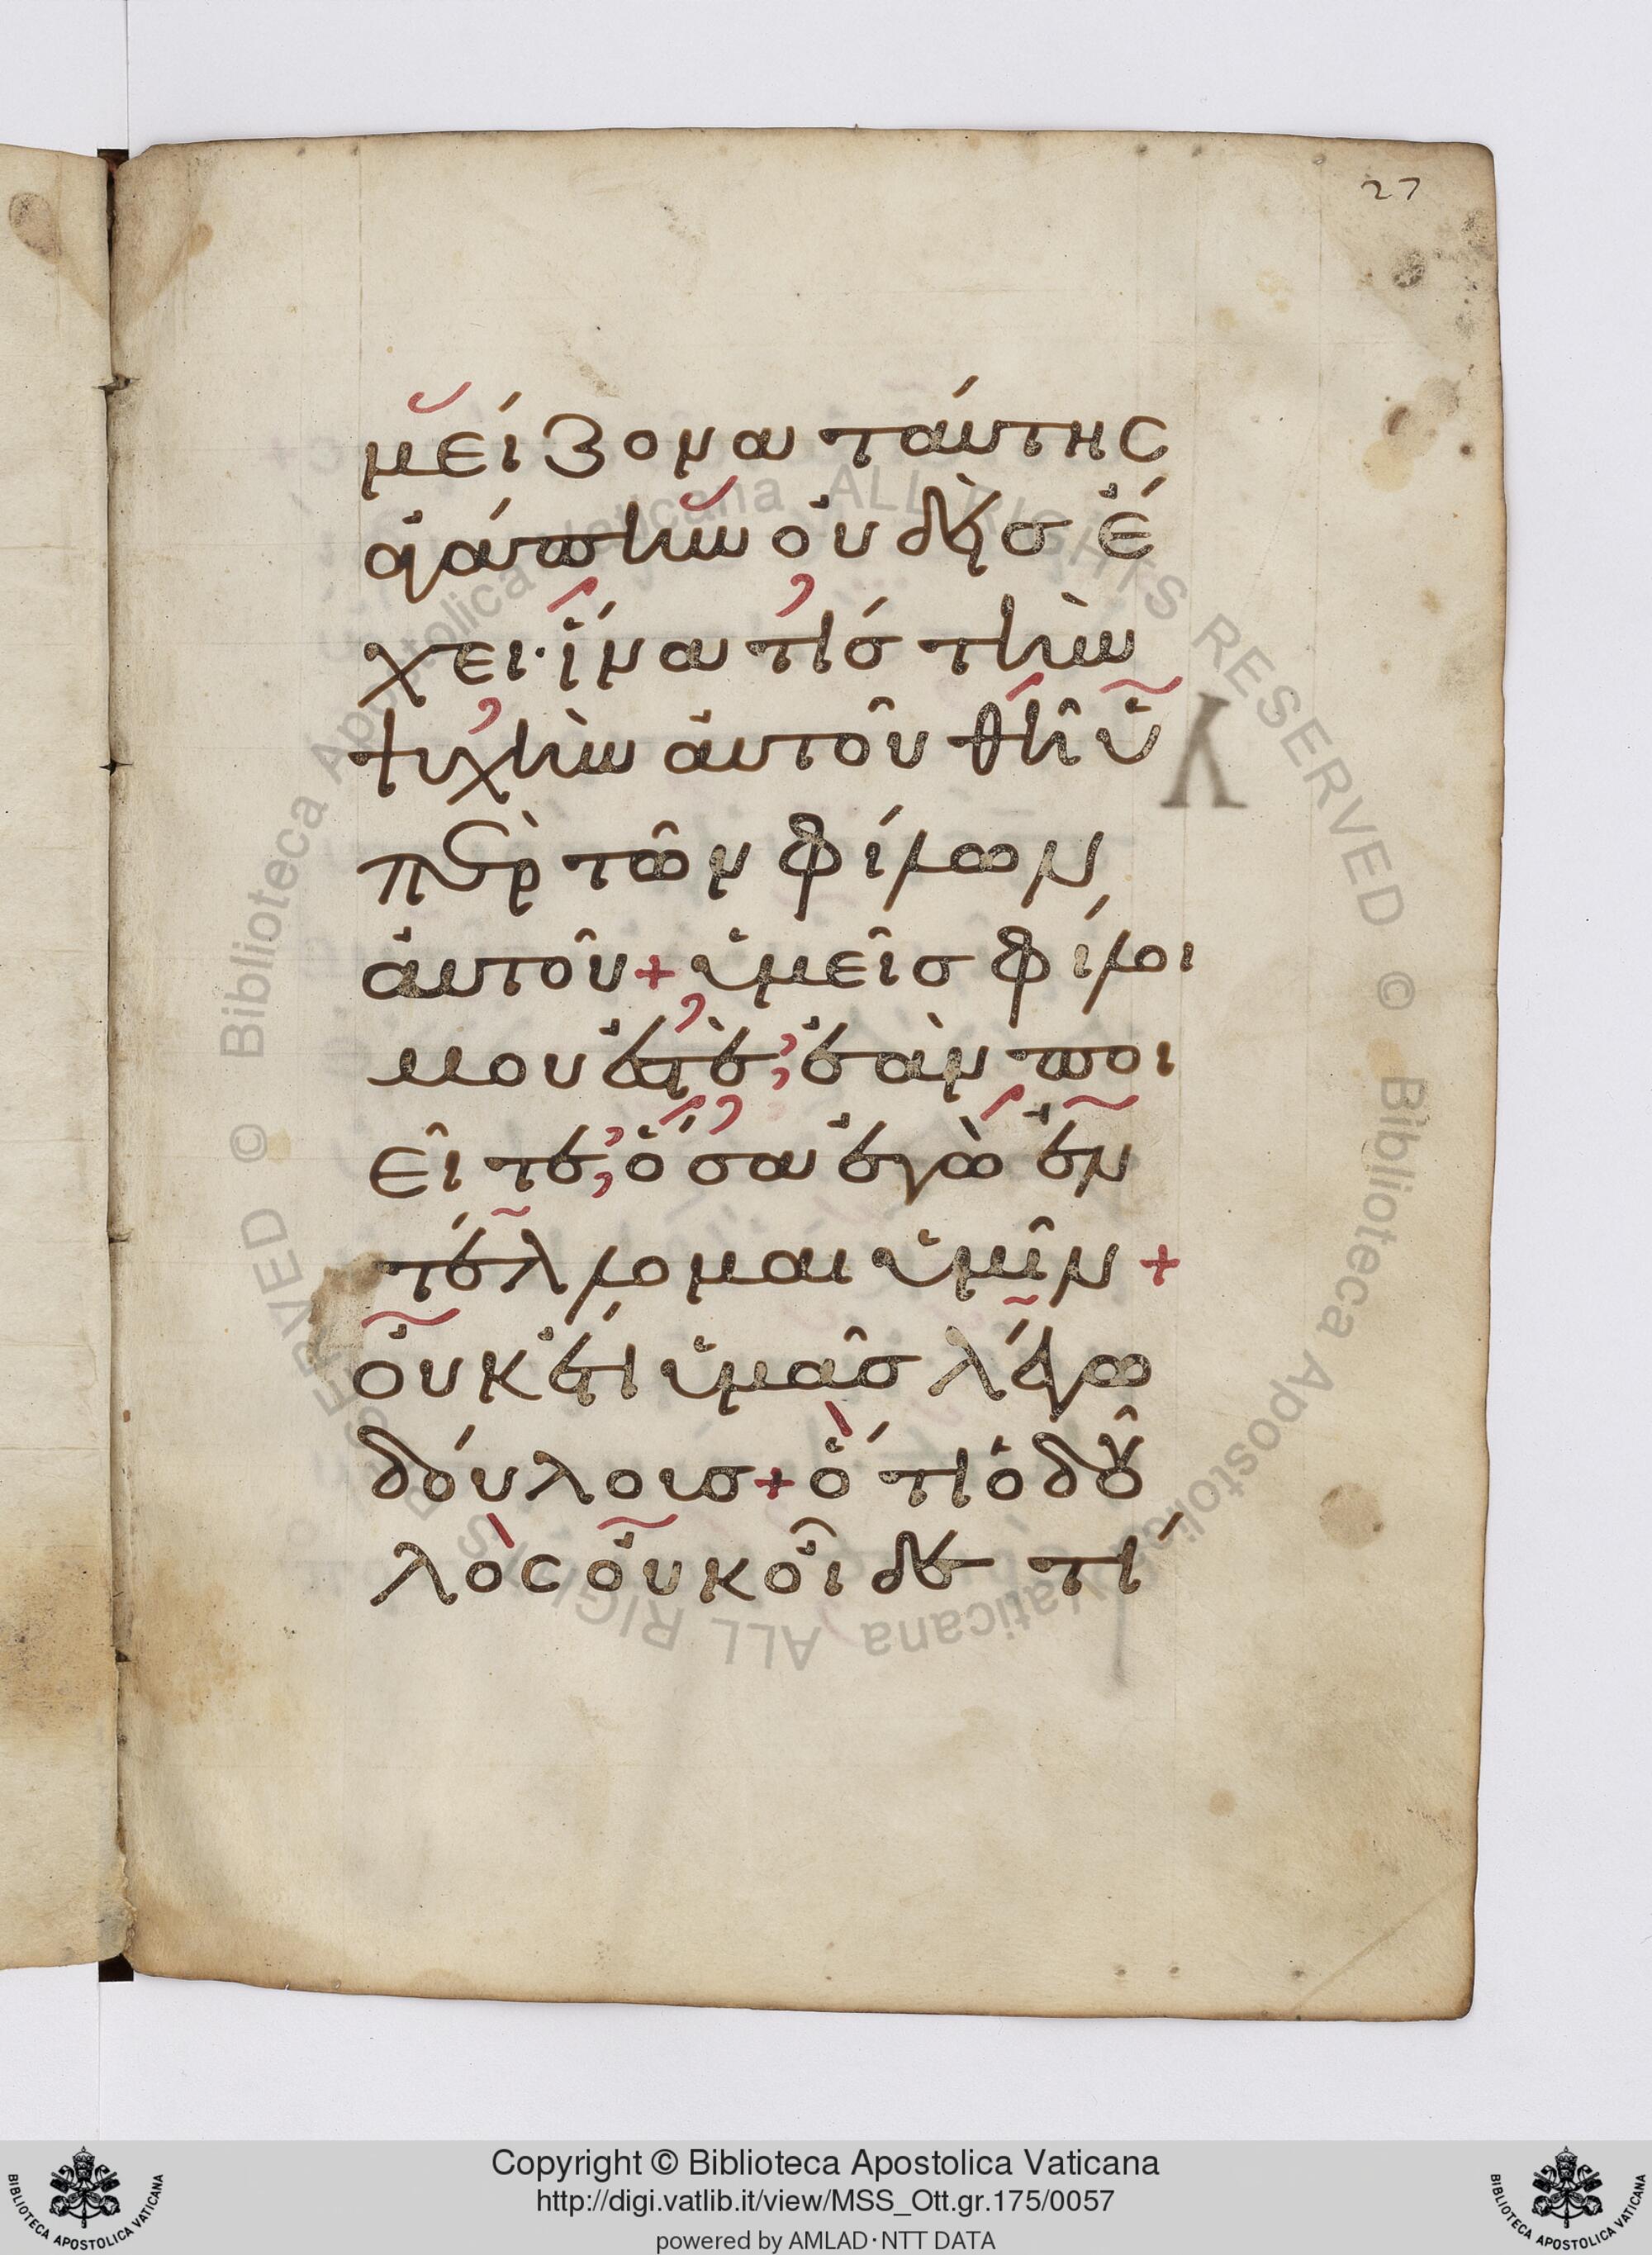 27
μείζονα ταύτης
ἀγάπην οὐδεὶσ ἔ
χει· ἵνα τίσ τὴν
ψυχὴν ἀυτοῦ θῆ ὑ
πὲρ τῶν φίλων
ἀυτοῦ + ὑμεῖσ φίλοι
μου ἐστὲ; ἐὰν ποι
εῖτε; ὅσα ἐγὼ ἐν
τέλλομαι ὑμῖν +
οὐκέτι ὑμᾶσ λέγω
δούλουσ + ὅτι ὁ δοῦ
λὸς οὐκ οἶδε τί
Copyright © Biblioteca Apostolica Vaticana
http://digi.vatlib.it/view/MSS_Ott.gr.175/0057
powered by AMLAD·NTT DATA
© Biblioteca Apostolica Vaticana ALL RIGHTS RESERVED © Biblioteca Apostolica Vaticana ALL RIGHTS RESERVED
BIBLIOTECA APOSTOLICA VATICANA
BIBLIOTECA APOSTOLICA VATICANA